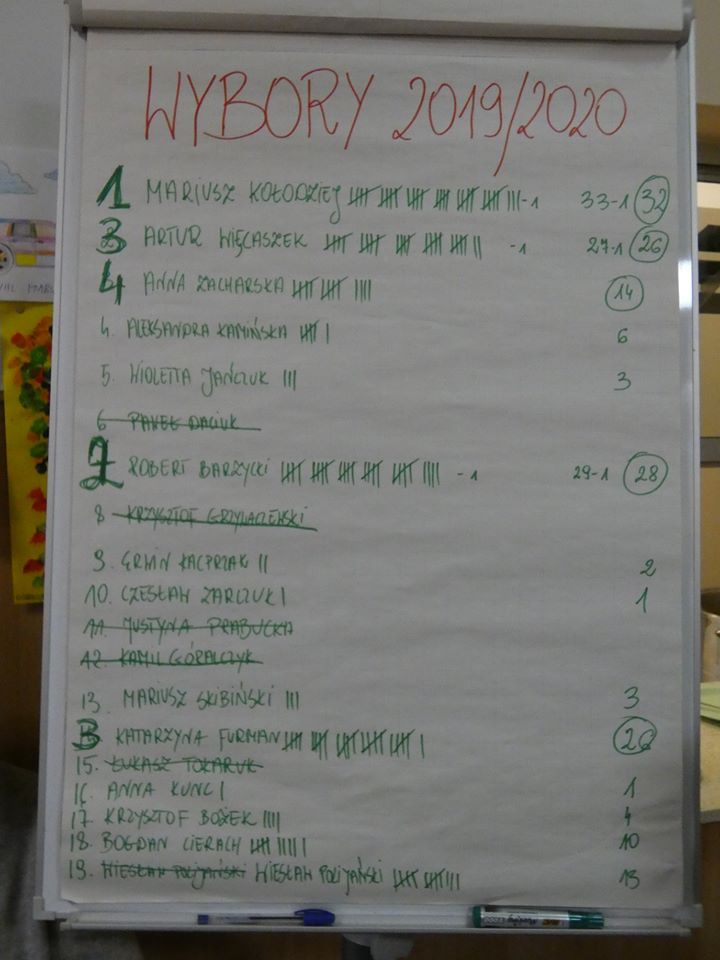 WYBORY 2019/2020
1 MARIUSZ KOŁODZIEJ 卌 卌 卌 卌 卌 卌 III -1 33-1 32
3 ARTUR WIĘCASZEK 卌 卌 卌 卌 卌 II -1 27-1 26
4 ANNA ZACHARSKA 卌 卌 IIII 14
4. ALEKSANDRA KAMIŃSKA 卌 I 6
5. WIOLETTA JAŃCZUK III 3
6 PAWEŁ DACIUK
2 ROBERT BARZYCKI 卌 卌 卌 卌 卌 IIII -1 29-1 28
8 KRZYSZTOF
9. ERWIN KACPRZAK II 2
10. CZESŁAW ZARCZUK I 1
11. JUSTYNA PRABUCKA
12. KAMIL GÓRALCZYK
13. MARIUSZ SKIBIŃSKI III 3
3 KATARZYNA FURMAN 卌 卌 卌 卌 卌 I 26
15. ŁUKASZ TOKARUK
16. ANNA KUNC I 1
17. KRZYSZTOF BOŻEK IIII 4
18. BOGDAN CIERACH 卌 IIIII 10
19. WIESŁAW POLIJAŃSKI WIESŁAW POLIJAŃSKI 卌 卌 III 13